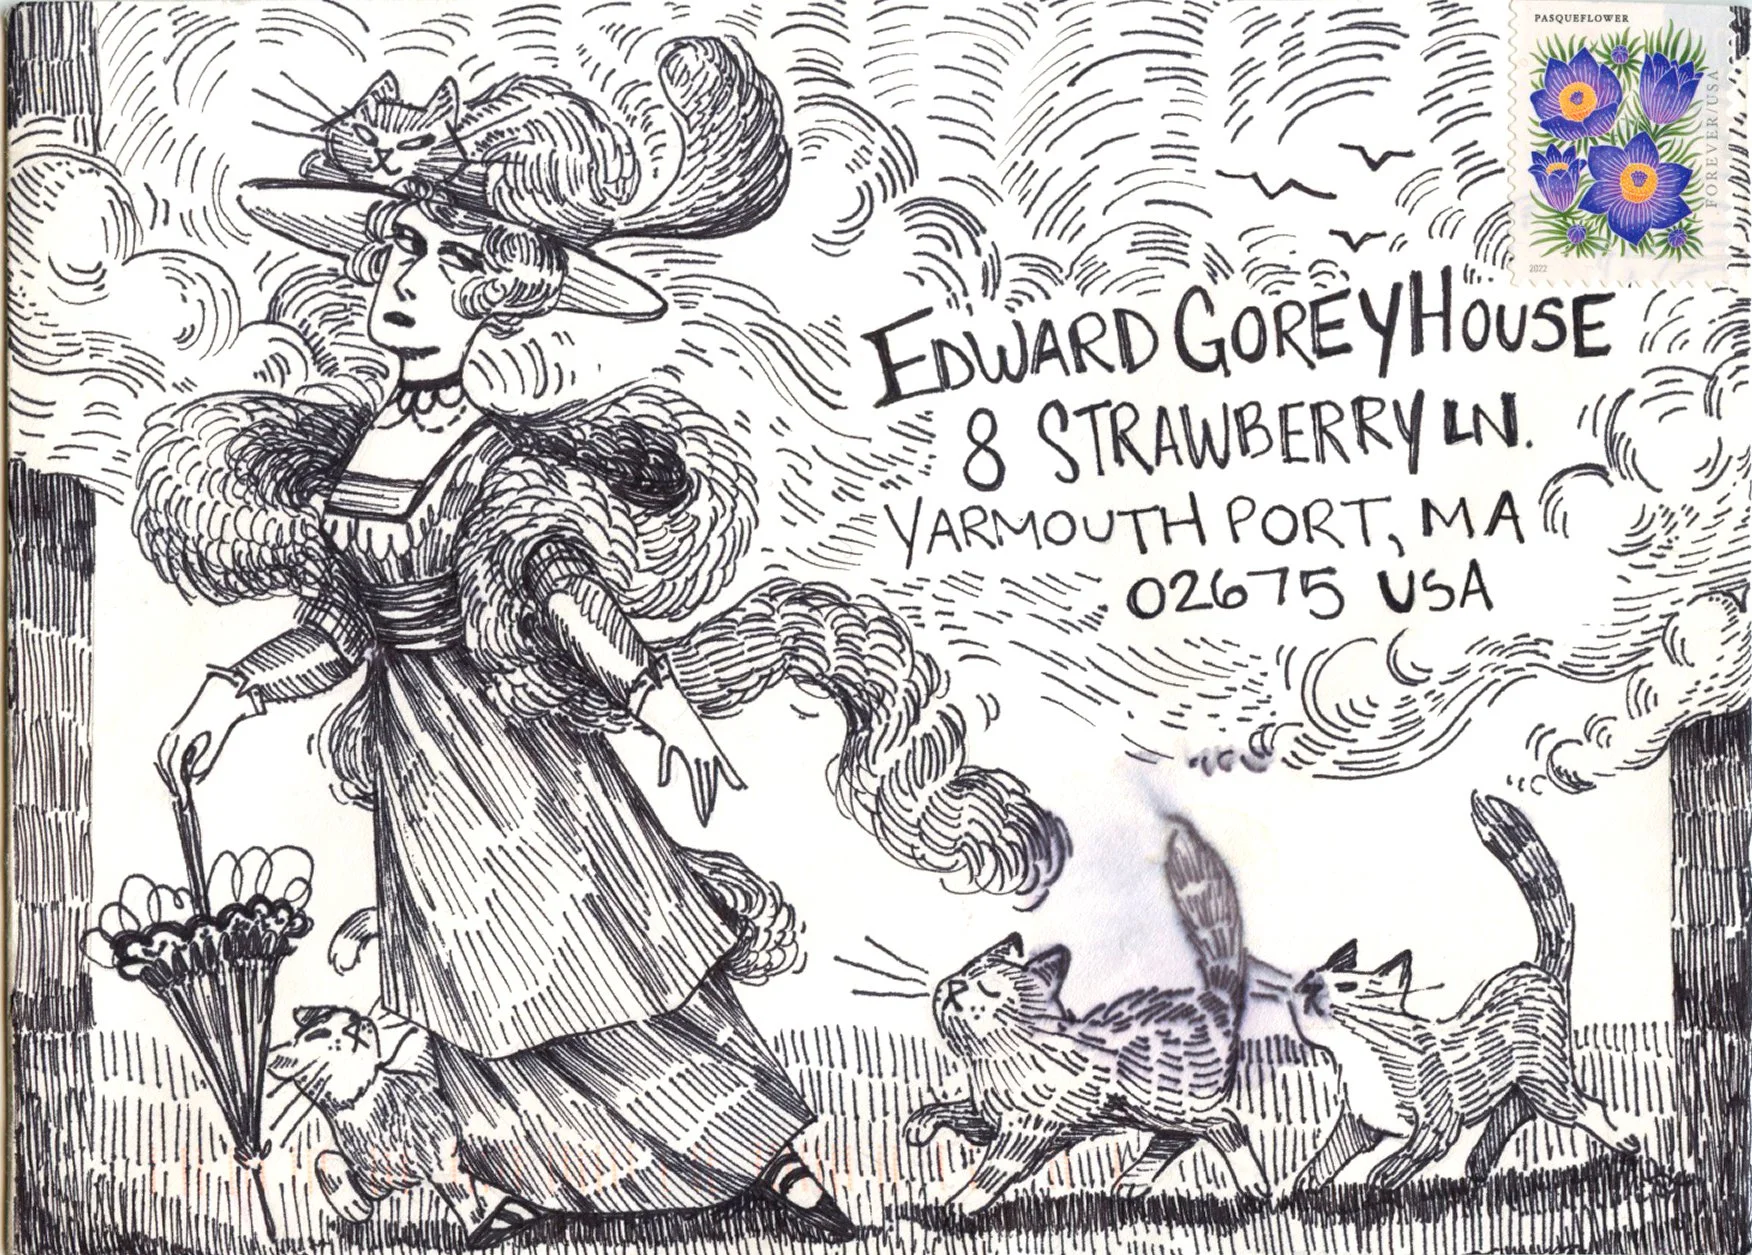 PASQUEFLOWER
FOREVER/USA
2022
EDWARD GOREY HOUSE
8 STRAWBERRY LN.
YARMOUTH PORT, MA
02675 USA